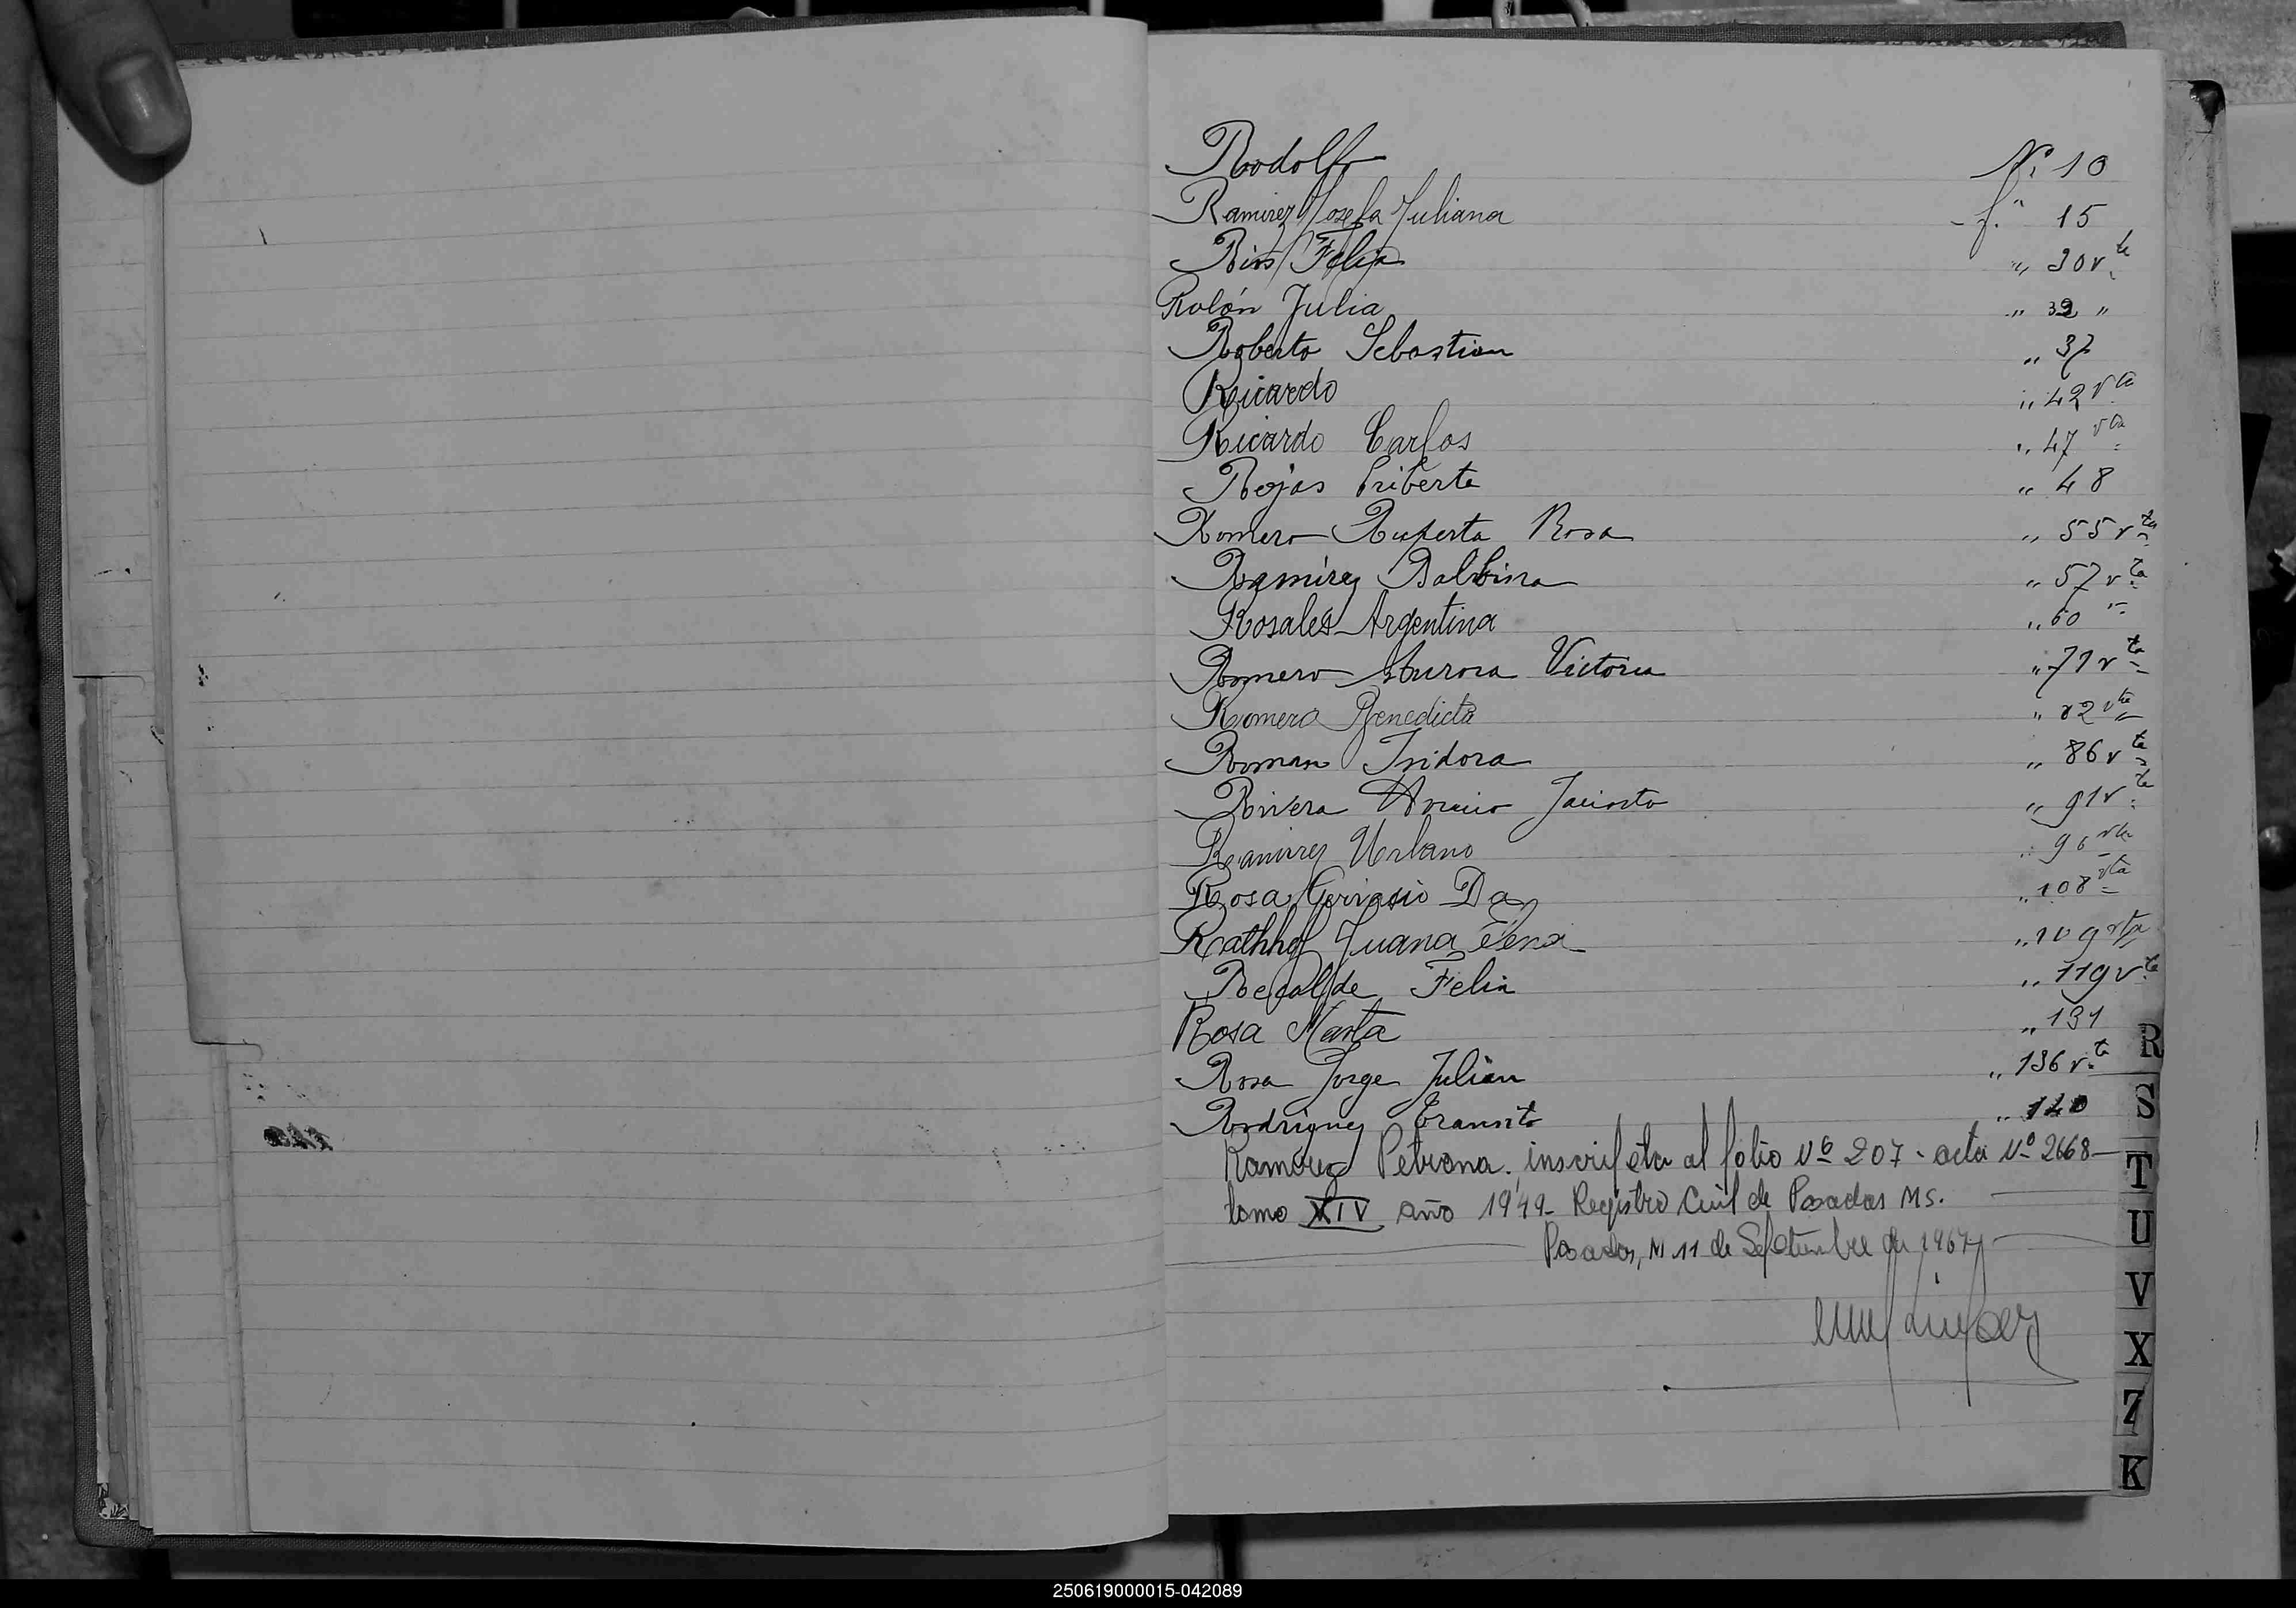 Rodolfo Nº 10
Ramirez Josefa Juliana f.º 15
Rios Felix " 30 vta
Rolón Julia " 32 "
Roberto Sebastian " 37
Ricardo " 42 vta
Ricardo Carlos " 47 vta
Rojas Eriberta " 48
Romero Ruperta Rosa " 55 vta
Ramirez Balbina " 57 vta
Rosales Argentina " 60 v
Romero Aurora Victoria " 71 vta
Romero Benedicta " 82 vta
Roman Isidora " 86 vta
Rivera Jacinto " 91 vta
Ramirez Urbano " 96 vta
Rosa Gervasio Da " 108 vta
Rathhof Juana " 109 vta
Recalde Felix " 119 vta
Rosa Marta " 131
Rosa Jorge Julian " 136 vta
Rodriguez Transito " 140
Ramirez Petrona. inscripta al folio Nº 207 - acta Nº 2668 -
tomo XIV año 1949 - Registro Civil de Posadas MS.
Posadas, M 11 de Septiembre de 1967
R
S
T
U
V
X
Z
K
250619000015-042089